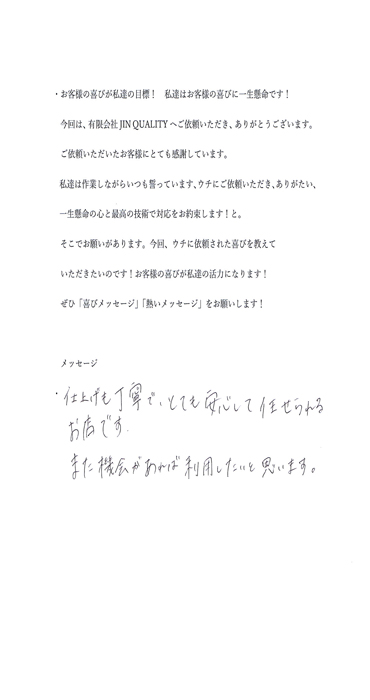 ・お客様の喜びが私達の目標！　私達はお客様の喜びに一生懸命です！
今回は、有限会社 JIN QUALITY へご依頼いただき、ありがとうございます。
ご依頼いただいたお客様にとても感謝しています。
私達は作業しながらいつも誓っています、ウチにご依頼いただき、ありがたい、
一生懸命の心と最高の技術で対応をお約束します！と。
そこでお願いがあります。今回、ウチに依頼された喜びを教えて
いただきたいのです！お客様の喜びが私達の活力になります！
ぜひ「喜びメッセージ」「熱いメッセージ」をお願いします！
メッセージ
・仕上げも丁寧で、とても安心して任せられる
お店です.
また機会があれば利用したいと思います。